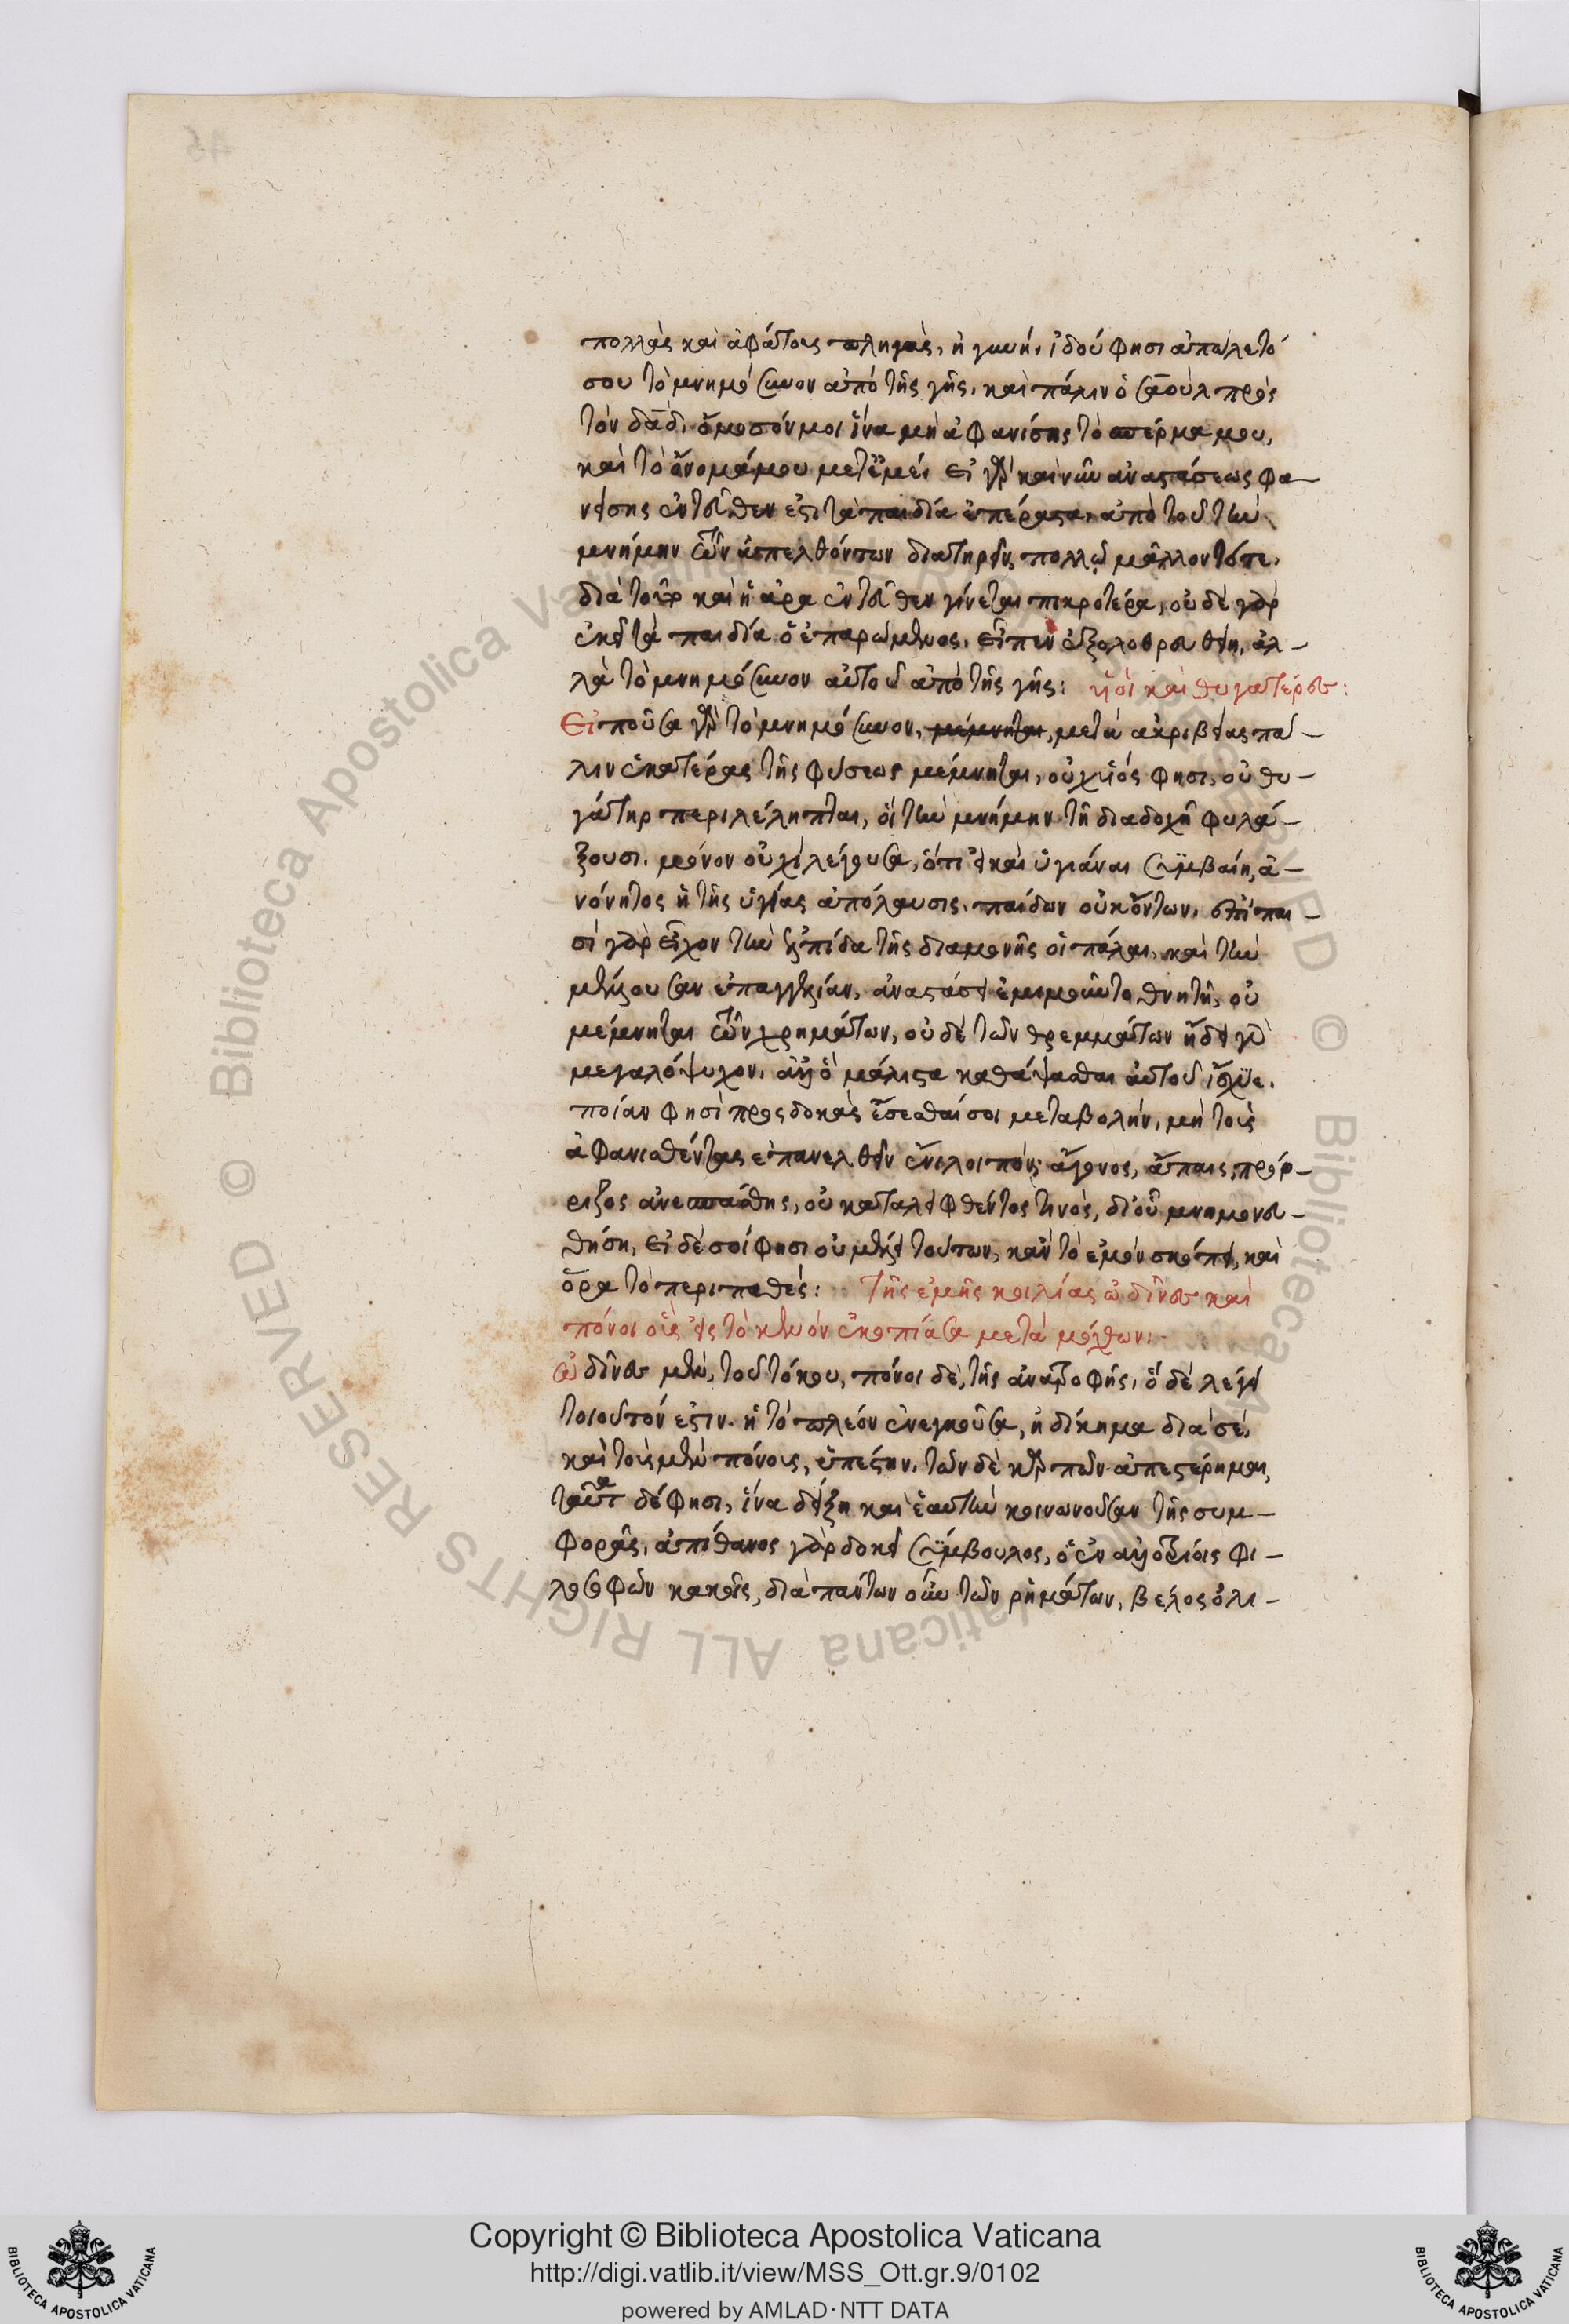 πολλὰς καὶ ἀφάτους πληγὰς, ἡ γυνή, ἰδού φησι ἀπώλετό
σου τὸ μνημόσυνον ἀπὸ τῆς γῆς. καὶ πάλιν ὁ σαοὺλ πρὸς
τὸν δᾱδ. ὄμοσόν μοι ἵνα μὴ ἀφανίσης τὸ σπέρμα μου,
καὶ τὸ ὄνομά μου μετ' ἐμέ. εἰ γὰρ καὶ νῦν ἀναστάσεως φα-
νείσης ἐντεῦθεν ἐστι τὰ παιδία ἐπέραστα, ἀπὸ τοῦ τὴν
μνήμην τῶν ἀπελθόντων διατηρεῖν, πολλῷ μᾶλλον τότε.
διὰ τοῦτο καὶ ἡ ἀρὰ ἐντεῦθεν γίνεται πικροτέρα, οὐδὲ γὰρ
ἐκεῖ τὰ παιδία ὁ ἐπαρώμενος, εἶπεν ἐξολοθρευθείη, ἀλ-
λὰ τὸ μνημόσυνον αὐτοῦ ἀπὸ τῆς γῆς: υἱοὶ καὶ θυγατέρες:
Εἰποῦσα γὰρ τὸ μνημόσυνον, μέμνηται, μετὰ ἀκριβείας πά-
λιν ἑκατέρας τῆς φύσεως μέμνηται, οὐχ υἱός φησι, οὐ θυ-
γάτηρ περιλέλειπται, οἳ τὴν μνήμην τῇ διαδοχῇ φυλά-
ξουσι. μόνον οὐχὶ λέγουσα, ὅτι εἰ καὶ ὑγιάναι συμβαίη, ἀ-
νόνητος ἡ τῆς ὑγείας ἀπόλαυσις, παίδων οὐκ ὄντων. ἐπὶ παι-
σὶ γὰρ εἶχον τὴν ἐλπίδα τῆς διαμονῆς οἱ πάλαι, καὶ τὴν
μένουσαν ἐπαγγελίαν, ἀναστάσει ἐμιμοῦντο θνητῇ, οὐ
μέμνηται τῶν χρημάτων, οὐδὲ τῶν θρεμμάτων ᾔδει γὰρ
μεγαλόψυχον. ἀλλ' ὃ μάλιστα καθάψασθαι αὐτοῦ ἴσχυε.
ποίαν φησὶ προσδοκᾷς ἔσεσθαί σοι μεταβολήν, μὴ τοὺς
ἀφανισθέντας ἐπανελθεῖν ἔνι λοιπόν; ἄγονος, ἄπαις, πρόρ-
ριζος ἀνεσπάσθης, οὐ καταλειφθέντος τινὸς, δι' οὗ μνημονευ-
θήση, εἰ δὲ σοί φησι οὐ μέλει τούτων, κἂν τὸ ἐμὸν σκόπει, καὶ
ὅρα τὸ περιπαθές: τῆς ἐμῆς κοιλίας ὠδῖνες καὶ
πόνοι οἷς εἰς τὸ κενὸν ἐκοπίασα μετὰ μόχθων:
ὠδῖνες μὲν, τοῦ τόκου, πόνοι δὲ, τῆς ἀνατροφῆς, ὃ δὲ λέγει
τοιοῦτόν ἐστιν. ἢ τὸ πλέον ἐνεγκοῦσα, ἠδίκημαι διὰ σέ,
καὶ τοὺς μὲν πόνους, ὑπέστην, τῶν δὲ καρπῶν ἀπεστέρημαι,
ταῦτα δέ φησι, ἵνα δείξη καὶ ἑαυτὴν κοινωνοῦσαν τῆς συμ-
φορᾶς, ἀπίθανος γὰρ δοκεῖ σύμβουλος, ὁ ἐν ἀλλοτρίοις φι-
λοσοφῶν κακοῖς, διὰ πάντων οὖν τῶν ῥημάτων, βέλος ὀλι-
Copyright © Biblioteca Apostolica Vaticana
http://digi.vatlib.it/view/MSS_Ott.gr.9/0102
powered by AMLAD·NTT DATA